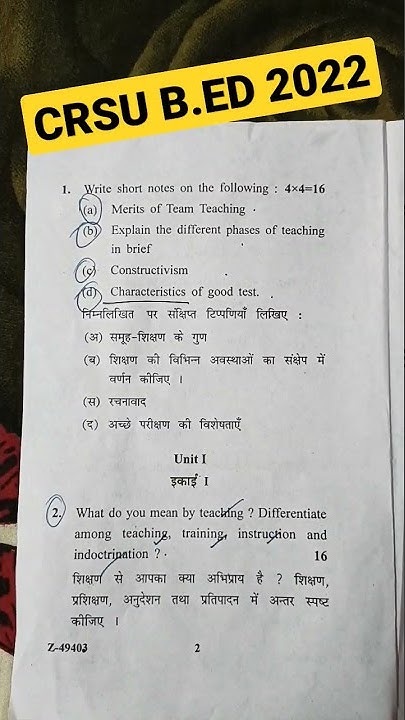 CRSU B.ED 2022
1. Write short notes on the following : 4×4=16
(a) Merits of Team Teaching .
(b) Explain the different phases of teaching
in brief
(c) Constructivism .
(d) Characteristics of good test. .
निम्नलिखित पर संक्षिप्त टिप्पणियाँ लिखिए :
(अ) समूह-शिक्षण के गुण
(ब) शिक्षण की विभिन्न अवस्थाओं का संक्षेप में
वर्णन कीजिए ।
(स) रचनावाद
(द) अच्छे परीक्षण की विशेषताएँ
Unit I
इकाई I
2. What do you mean by teaching ? Differentiate
among teaching, training, instruction and
indoctrination ? . 16
शिक्षण से आपका क्या अभिप्राय है ? शिक्षण,
प्रशिक्षण, अनुदेशन तथा प्रतिपादन में अन्तर स्पष्ट
कीजिए ।
Z-49403 2